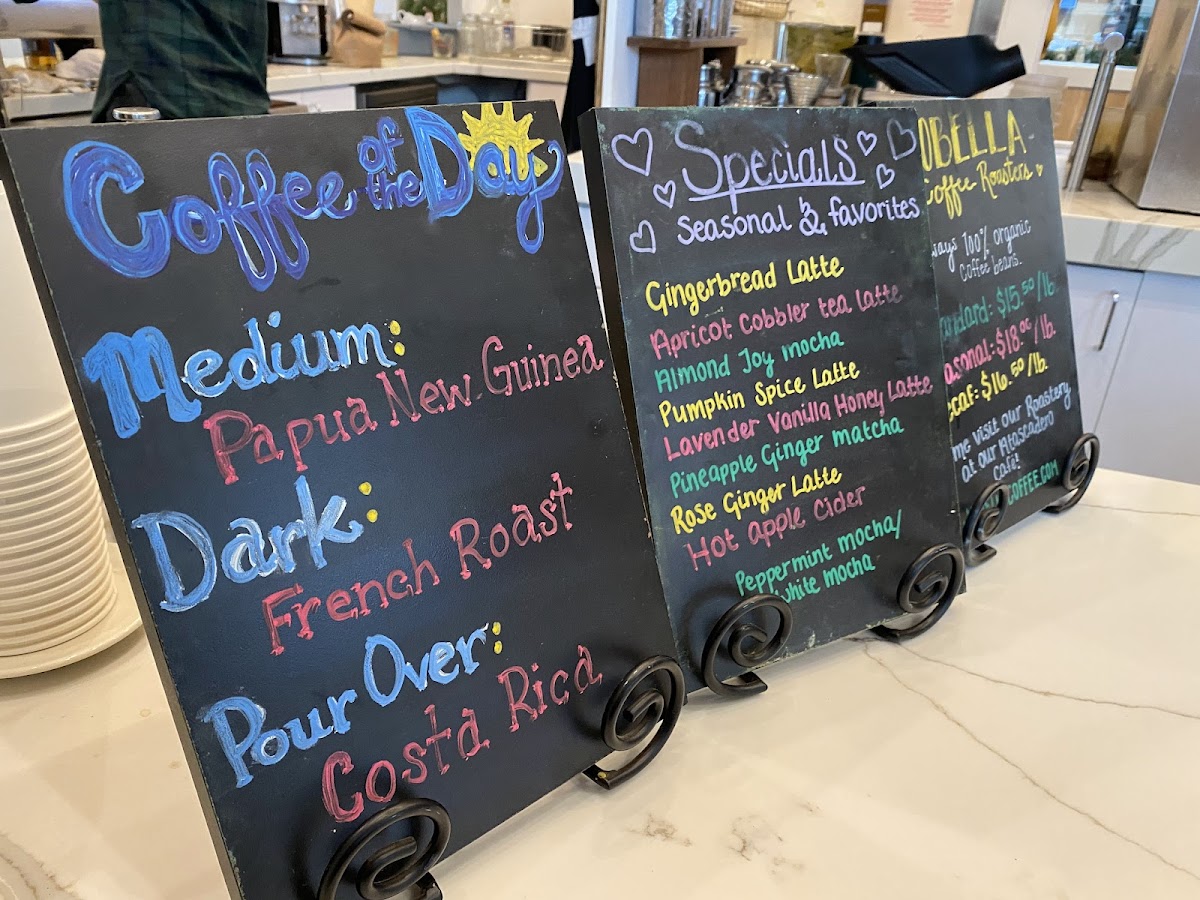 Coffee of the Day
Medium:
Papua New Guinea
Dark:
French Roast
Pour Over:
Costa Rica
Specials
Seasonal & favorites
Gingerbread Latte
Apricot Cobbler tea latte
Almond Joy mocha
Pumpkin Spice Latte
Lavender Vanilla Honey Latte
Pineapple Ginger matcha
Rose Ginger Latte
Hot apple cider
Peppermint mocha/
white mocha
OBELLA
Coffee Roasters
100% organic
coffee beans.
$15.50/lb.
$18.00/lb.
$16.50/lb.
visit our Roastery
at our Atascadero
café!
COFFEE.COM